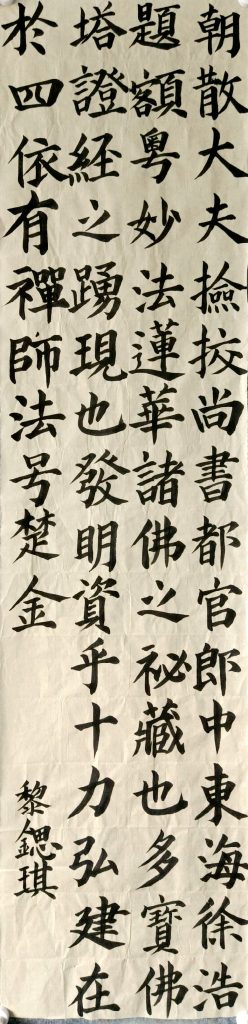 朝散大夫撿挍尚書都官郎中東海徐浩
題額粤妙法蓮華諸佛之祕藏也多寶佛
塔證経之踴現也發明資乎十力弘建在
於四依有禪師法号楚金
黎鎴琪